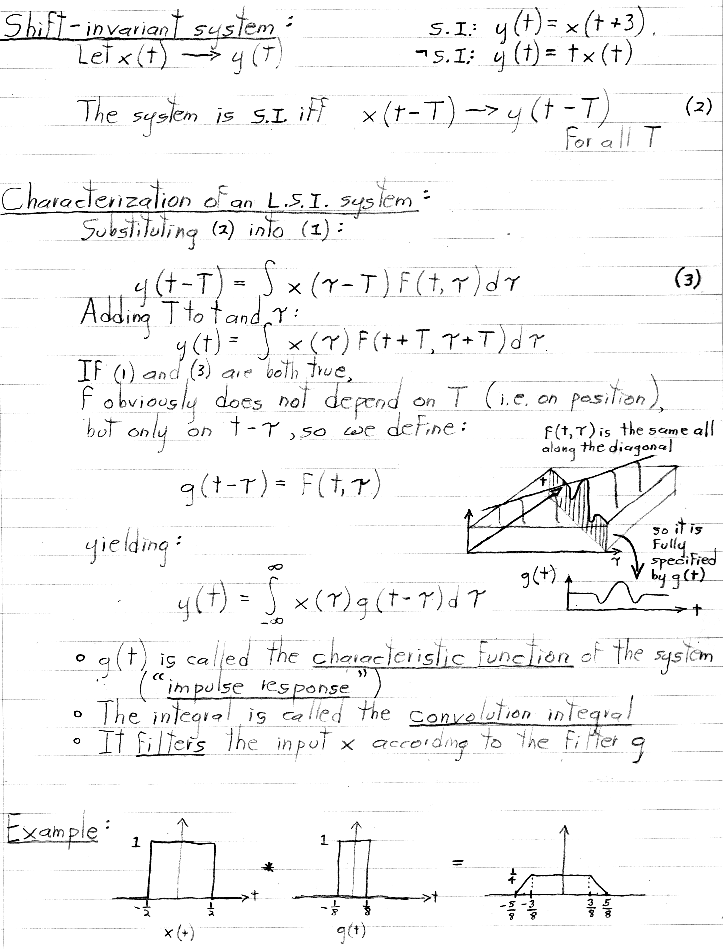 Shift-invariant system:
S.I.: y(t) = x(t+3).
Let x(t) → y(T)
¬S.I.: y(t) = t x(t)
The system is S.I. iff x(t-T) → y(t-T) (2)
For all T
Characterization of an L.S.I. system:
Substituting (2) into (1):
y(t-T) = ∫ x(τ-T) F(t,τ)dτ (3)
Adding T to t and τ:
y(t) = ∫ x(τ) F(t+T, τ+T)dτ.
If (1) and (3) are both true,
f obviously does not depend on T (i.e. on position),
but only on t-τ, so we define:
F(t,τ) is the same all
along the diagonal
g(t-τ) = F(t,τ)
t
τ
so it is
Fully
specified
by g(t)
yielding:
g(t)
t
y(t) = ∫_{-∞}^{∞} x(τ) g(t-τ)dτ
∘ g(t) is called the characteristic function of the system
("impulse response")
∘ The integral is called the convolution integral
∘ It filters the input x according to the filter g
Example:
1
*
1
=
1/4
-1/2 1/2 t
-1/8 1/8 t
-5/8 -3/8 3/8 5/8
x(t)
g(t)